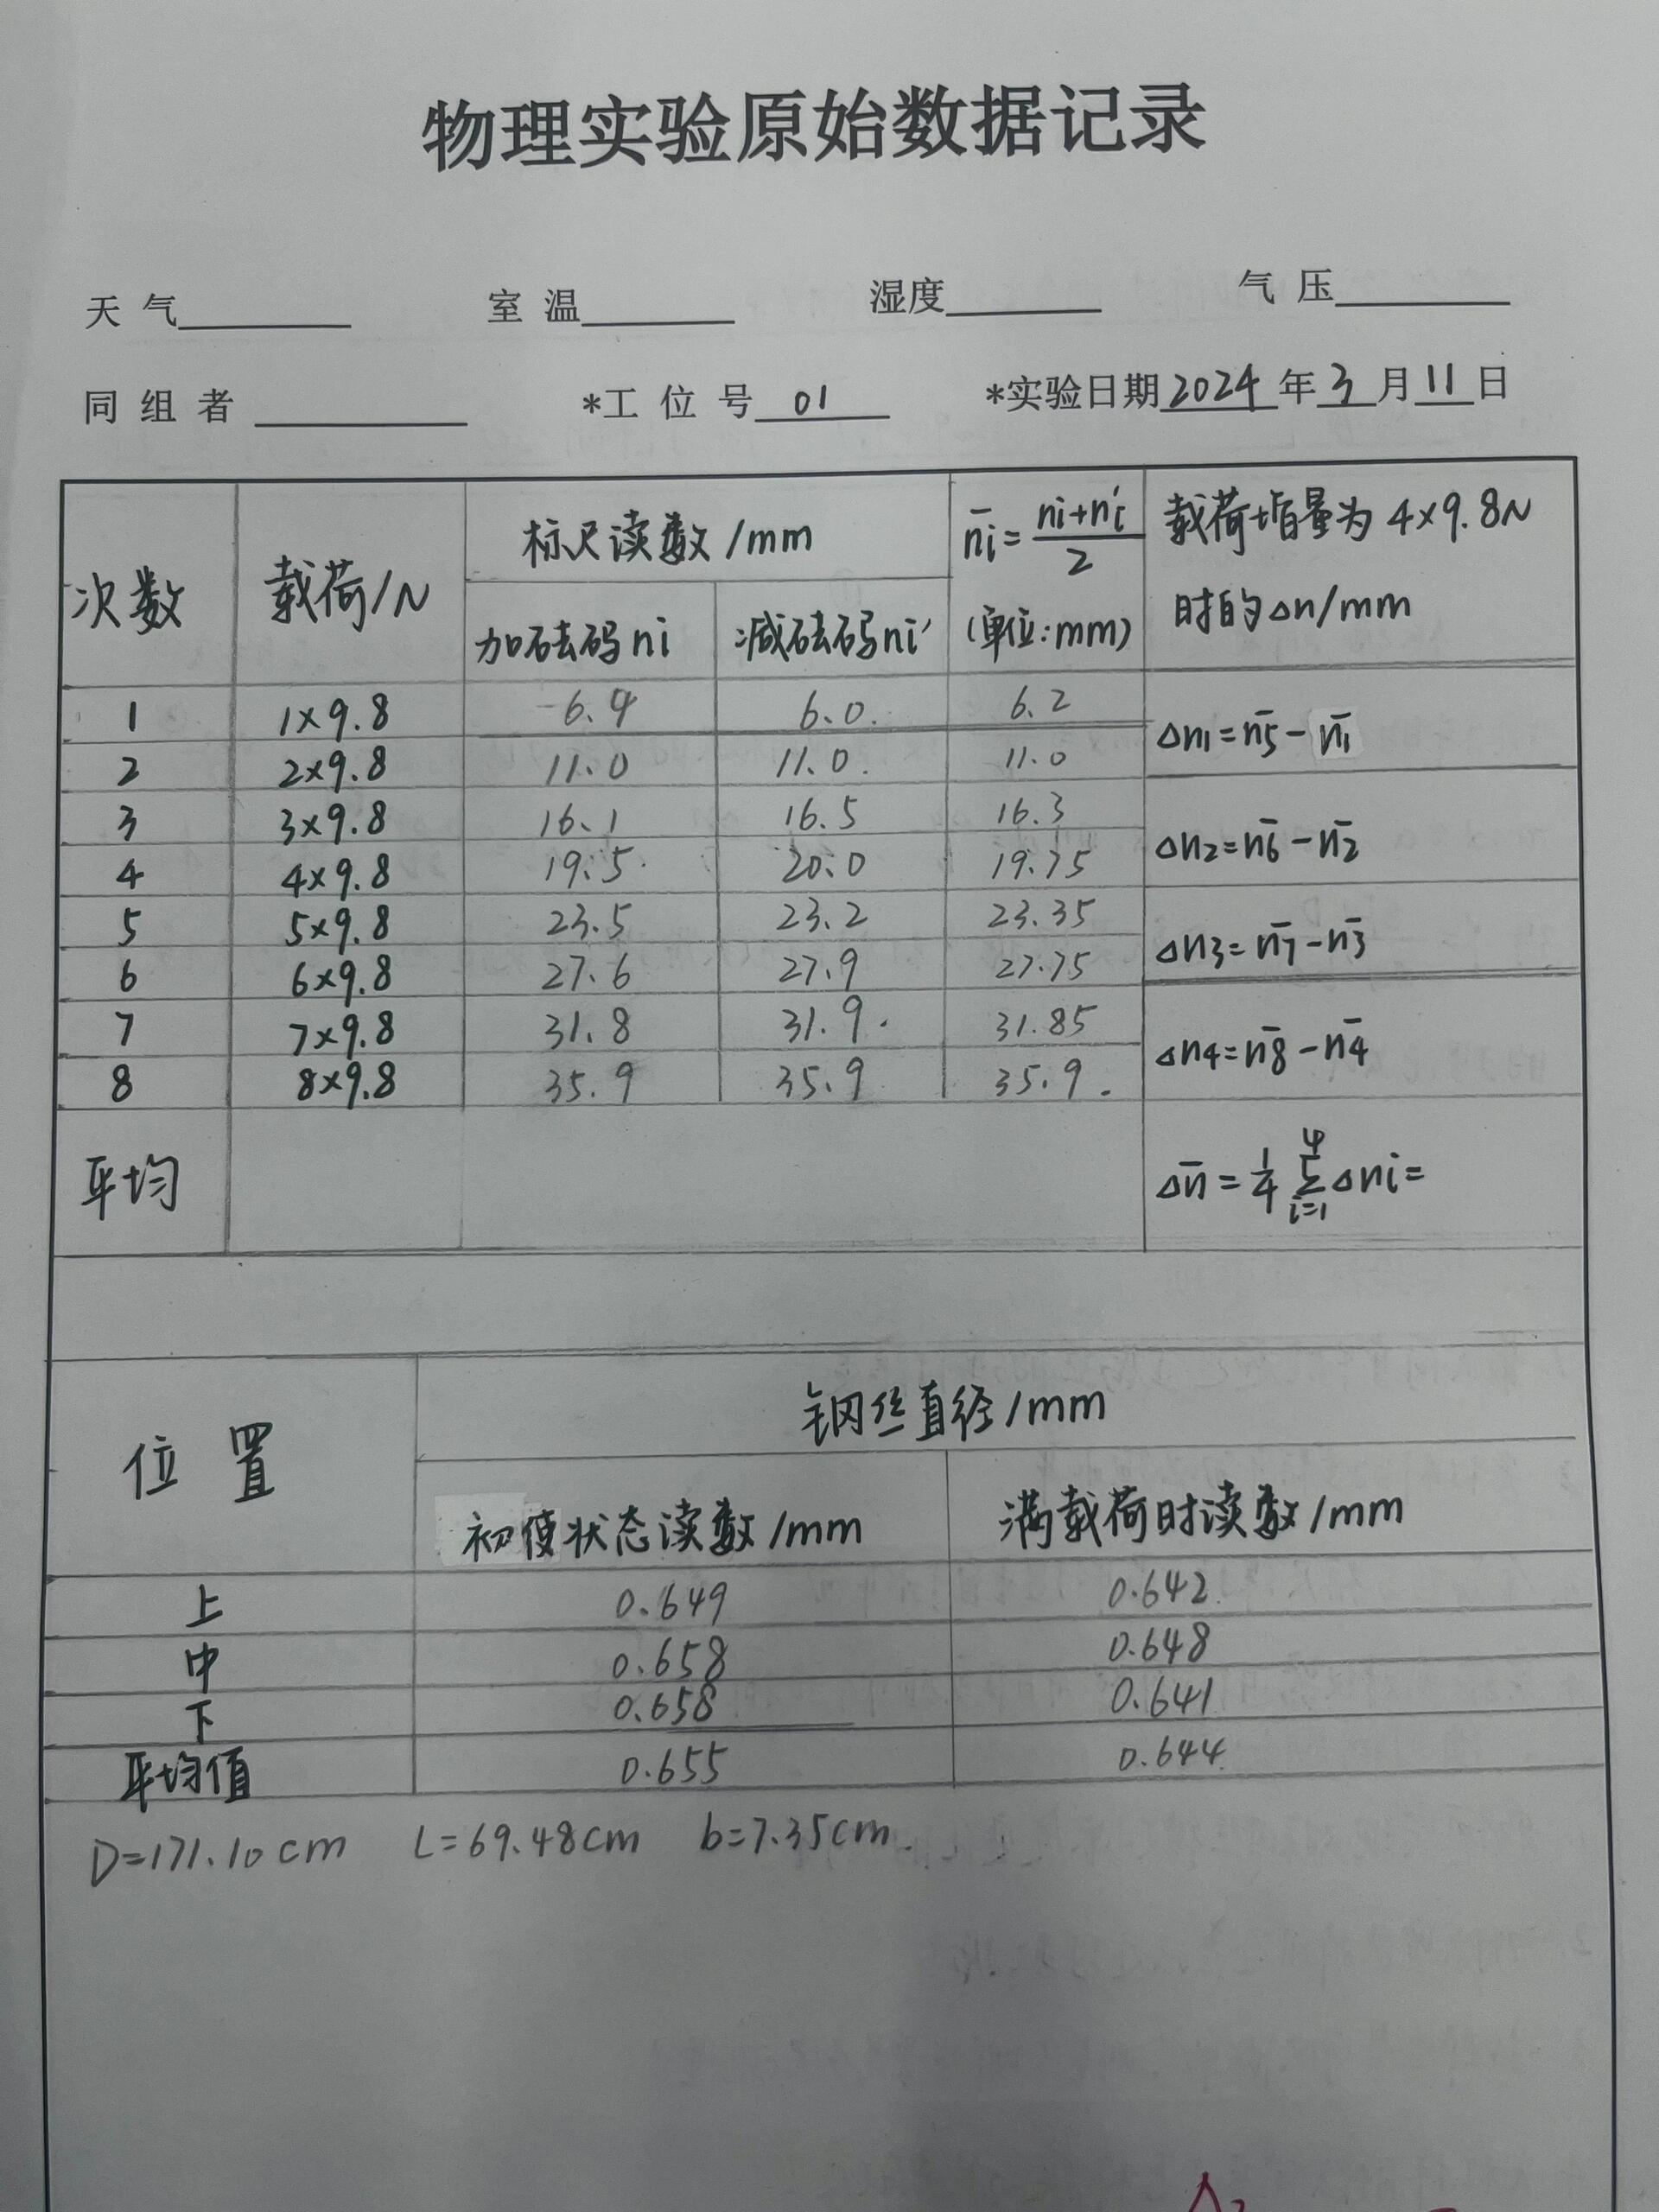 物理实验原始数据记录
天气 室温 湿度 气压
同组者 *工位号 01 *实验日期 2024 年 3 月 11 日
次数 载荷/N 标尺读数/mm n̄i = (ni+n'i)/2 载荷增量为 4×9.8N
加砝码 ni 减砝码 ni' (单位:mm) 时的 Δn/mm
1 1×9.8 6.4 6.0 6.2 Δn1=n̄5-n̄1
2 2×9.8 11.0 11.0 11.0
3 3×9.8 16.1 16.5 16.3 Δn2=n̄6-n̄2
4 4×9.8 19.5 20.0 19.75
5 5×9.8 23.5 23.2 23.35 Δn3=n̄7-n̄3
6 6×9.8 27.6 27.9 27.75
7 7×9.8 31.8 31.9 31.85 Δn4=n̄8-n̄4
8 8×9.8 35.9 35.9 35.9
平均 Δn̄ = 1/4 4∑i=1 Δni=
位置 钢丝直径/mm
初使状态读数/mm 满载荷时读数/mm
上 0.649 0.642
中 0.658 0.648
下 0.658 0.641
平均值 0.655 0.644
D=171.10cm L=69.48cm b=7.35cm